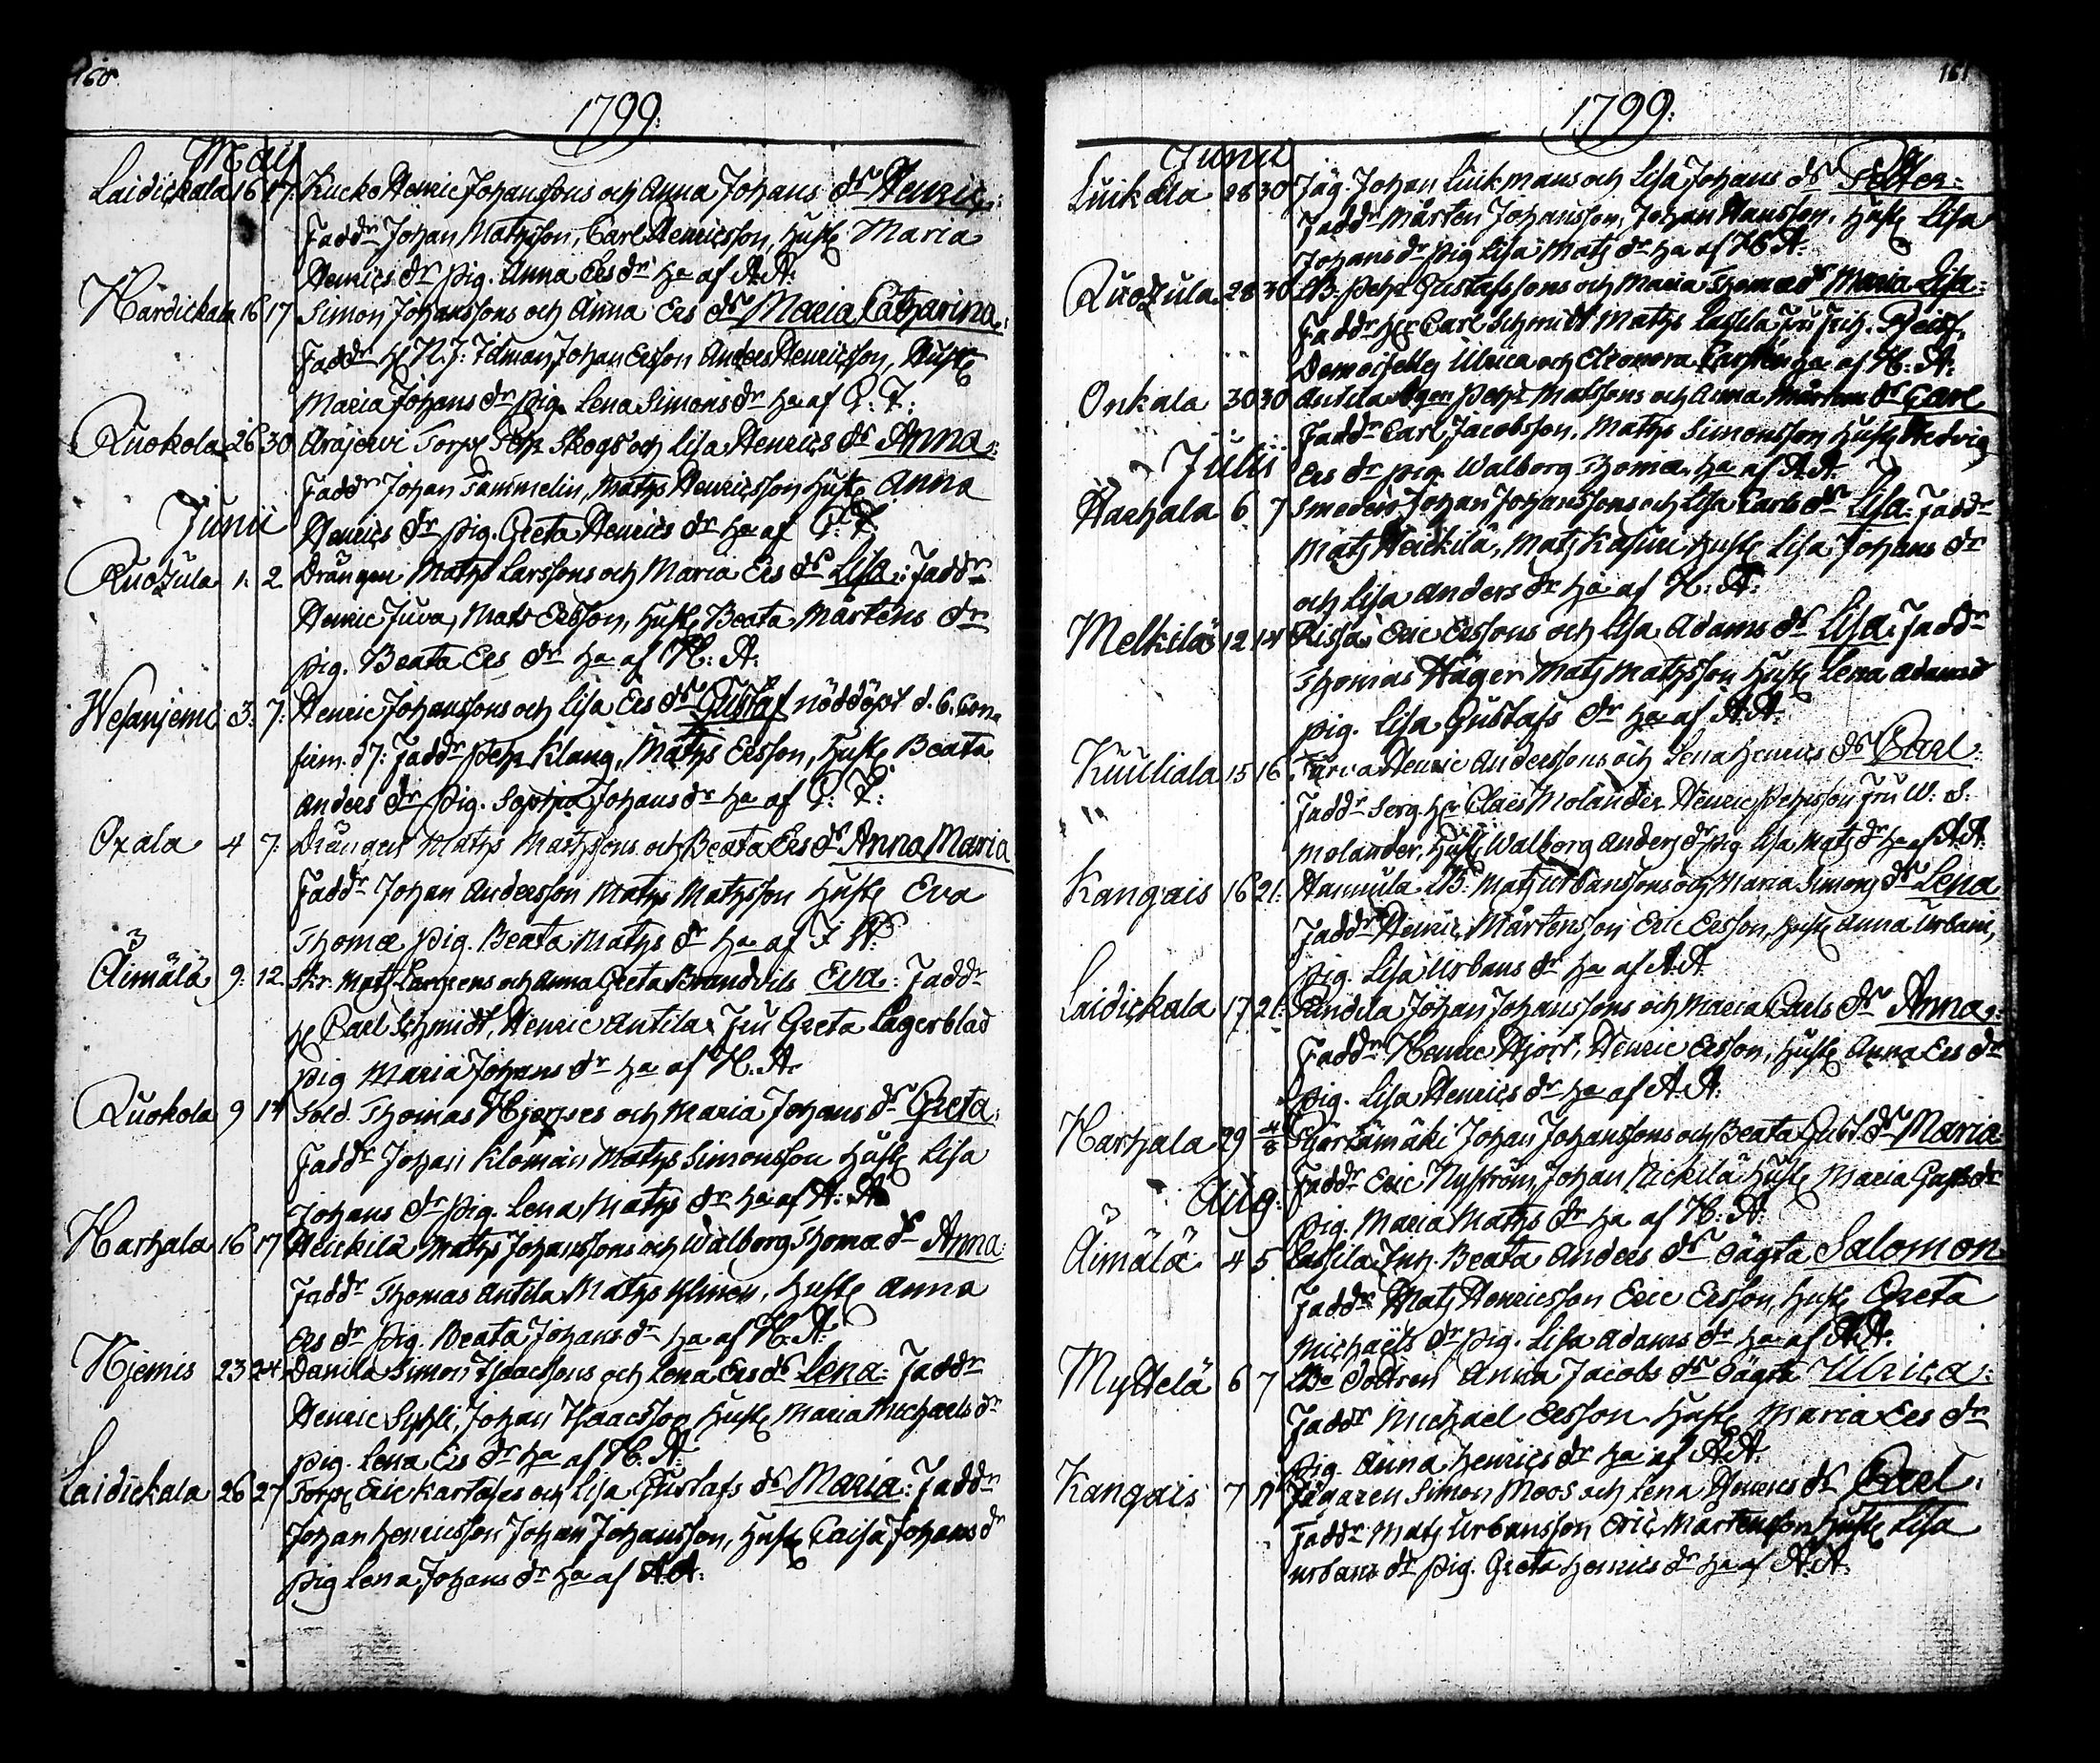 160.
1799:
Maij
Laidickala 16 17. Kucko Henric Johanssons och Anna Johans dr Henric:
Faddr Johan Mathsson, Carl Henricsson, Hust Maria
Henrics dr pig. Anna Ers dr ha af A.A:
Härdickala 16 17 Simon Johanssons och Anna Ers dr Maria Catharina:
Faddr H N. J: Idman, Johan Ersson Anders Henricsson, Hust
Maria Johans dr pig. Lena Simons dr ha af
Ruokola 26 30 Arajerwi Torp Pehr Skogs och Lisa Henrics dr Anna:
Faddr Johan Tammelin, Maths Henricsson Hust Anna
Junii
Henrics dr pig. Greta Henrics dr ha af
1. 2. Drängen Maths Larssons och Maria Ers dr Lisa: Faddr
Henric Juva, Mats Ersson, Hust Beata Mårtens dr
pig. Beata Ers dr ha af H: A:
3. 7: Henric Johanssons och Lisa Ers dr Gustaf nöddöpt d. 6. Con-
firm. d 7: Faddr Pehr Klang, Maths Ersson, Hust Beata
Anders dr pig. Sophia Johans dr ha af
Oxala 4 7. Drängen Maths Mathssons och Beata Ers dr Anna Maria
Faddr Johan Andersson Maths Mathsson Hust Eva
Thomæ pig. Beata Maths dr ha af
Äimälä 9: 12. Mats och Anna Greta Brandvils Eva: Faddr
H Carl Schmidt, Henric Antila Fru Greta Lagerblad
pig Maria Johans dr ha af H. A.
Ruokola 9 14 Sold. Thomas och Maria Johans dr Greta:
Faddr Johan Kloman Maths Simonsson Hust Lisa
Johans dr pig. Lena Maths dr ha af A: A
Harhala 16 17 Heickilä Maths Johanssons och Walborg Thomæ dr Anna:
Faddr Thomas Antila Maths Hust Anna
Ers dr pig. Beata Johans dr ha af H. A:
Hjemis 23 24. Danila Simon Isaacssons och Lena Ers dr Lena: Faddr
Henric Johan Isaacsson Hust Maria Michaels dr
pig. Lena Ers dr ha af H. A:
Laidickala 26 27 Torp Eric och Lisa Gustafs dr Maria: Faddr
Johan Henricsson Johan Johansson, Hust Caisa Johans dr
pig Lena Johans dr ha af A.A:
161
1799:
Junii
Luikala 28 30 Jäg. Johan Luikmans och Lisa Johans dr Petter:
Faddr Mårten Johansson, Johan Hansson, Hust Lisa
Johans dr pig Lisa Mats dr ha af H A:
28 30 Pehr Gustafssons och Maria Thomæ dr Maria Lisa:
Faddr Hr Carl Schmidt Maths Lassila
Demoiselles Ulrica och Eleonora ha af H: A:
Onkala 30 30 Antila Pehr Matssons och Anna Mårtens dr Carl
Faddr Carl Jacobsson, Maths Simonsson Hust Hedvig
Julii
Ers dr pig. Walborg Thomæ ha af A.A.
Harhala 6 7 Smeden Johan Johanssons och Lisa Carls dr Lisa: Faddr
Mats Heickilä, Mats Hust Lisa Johans dr
och Lisa Anders dr ha af H: A:
Melkilä 12 14 Rissa Eric Erssons och Lisa Adams dr Lisa: Faddr
Thomas Häger Mats Mathsson Hust Lena Adams
pig. Lisa Gustafs dr ha af A.A:
Kuuliala 15 16 Henric Anderssons och Lena Henrics dr Carl:
Faddr Serg. Hr Claes Molander Henric Pehrsson Fru W: S:
Molander, Hust Walborg Anders dr pig Lisa Mats dr ha af A.A:
Kangais 16 21: Hannula Mats Urbanssons och Maria Simons dr Lena
Faddr Henric Mårtensson Eric Ersson, Hust Anna Urbans,
pig. Lisa Urbans dr ha af A.A
Laidickala 17 21: Johan Johanssons och Maria Carls dr Anna:
Faddr Henric Hjort, Henric Ersson, Hust Anna Ers dr
pig. Lisa Henrics dr ha af A.A:
Harhala 29 4/8 Johan Johanssons och Beata Gust. dr Maria:
Faddr Eric Nyström, Johan Hust Maria dr
Aug:
pig. Maria Maths dr ha af H: A:
Äimälä 4 5 Lassila Beata Anders dr oägta Salomon
Faddr Mats Henricsson Eric Ersson, Hust Greta
Michaels dr pig. Lisa Adams dr ha af A.A.
Myttelä 6 7 Anna Jacobs dr oägta Ulrica:
Faddr Michael Ersson Hust Maria Ers dr
pig. Anna Henrics dr ha af A.A.
Kangais 7 11 Jägaren Simon Moos och Lena Henrics dr Carl:
Faddr Mats Urbansson Eric Martensson Hust Lisa
Urbans dr pig. Greta Henrics dr ha af A.A.